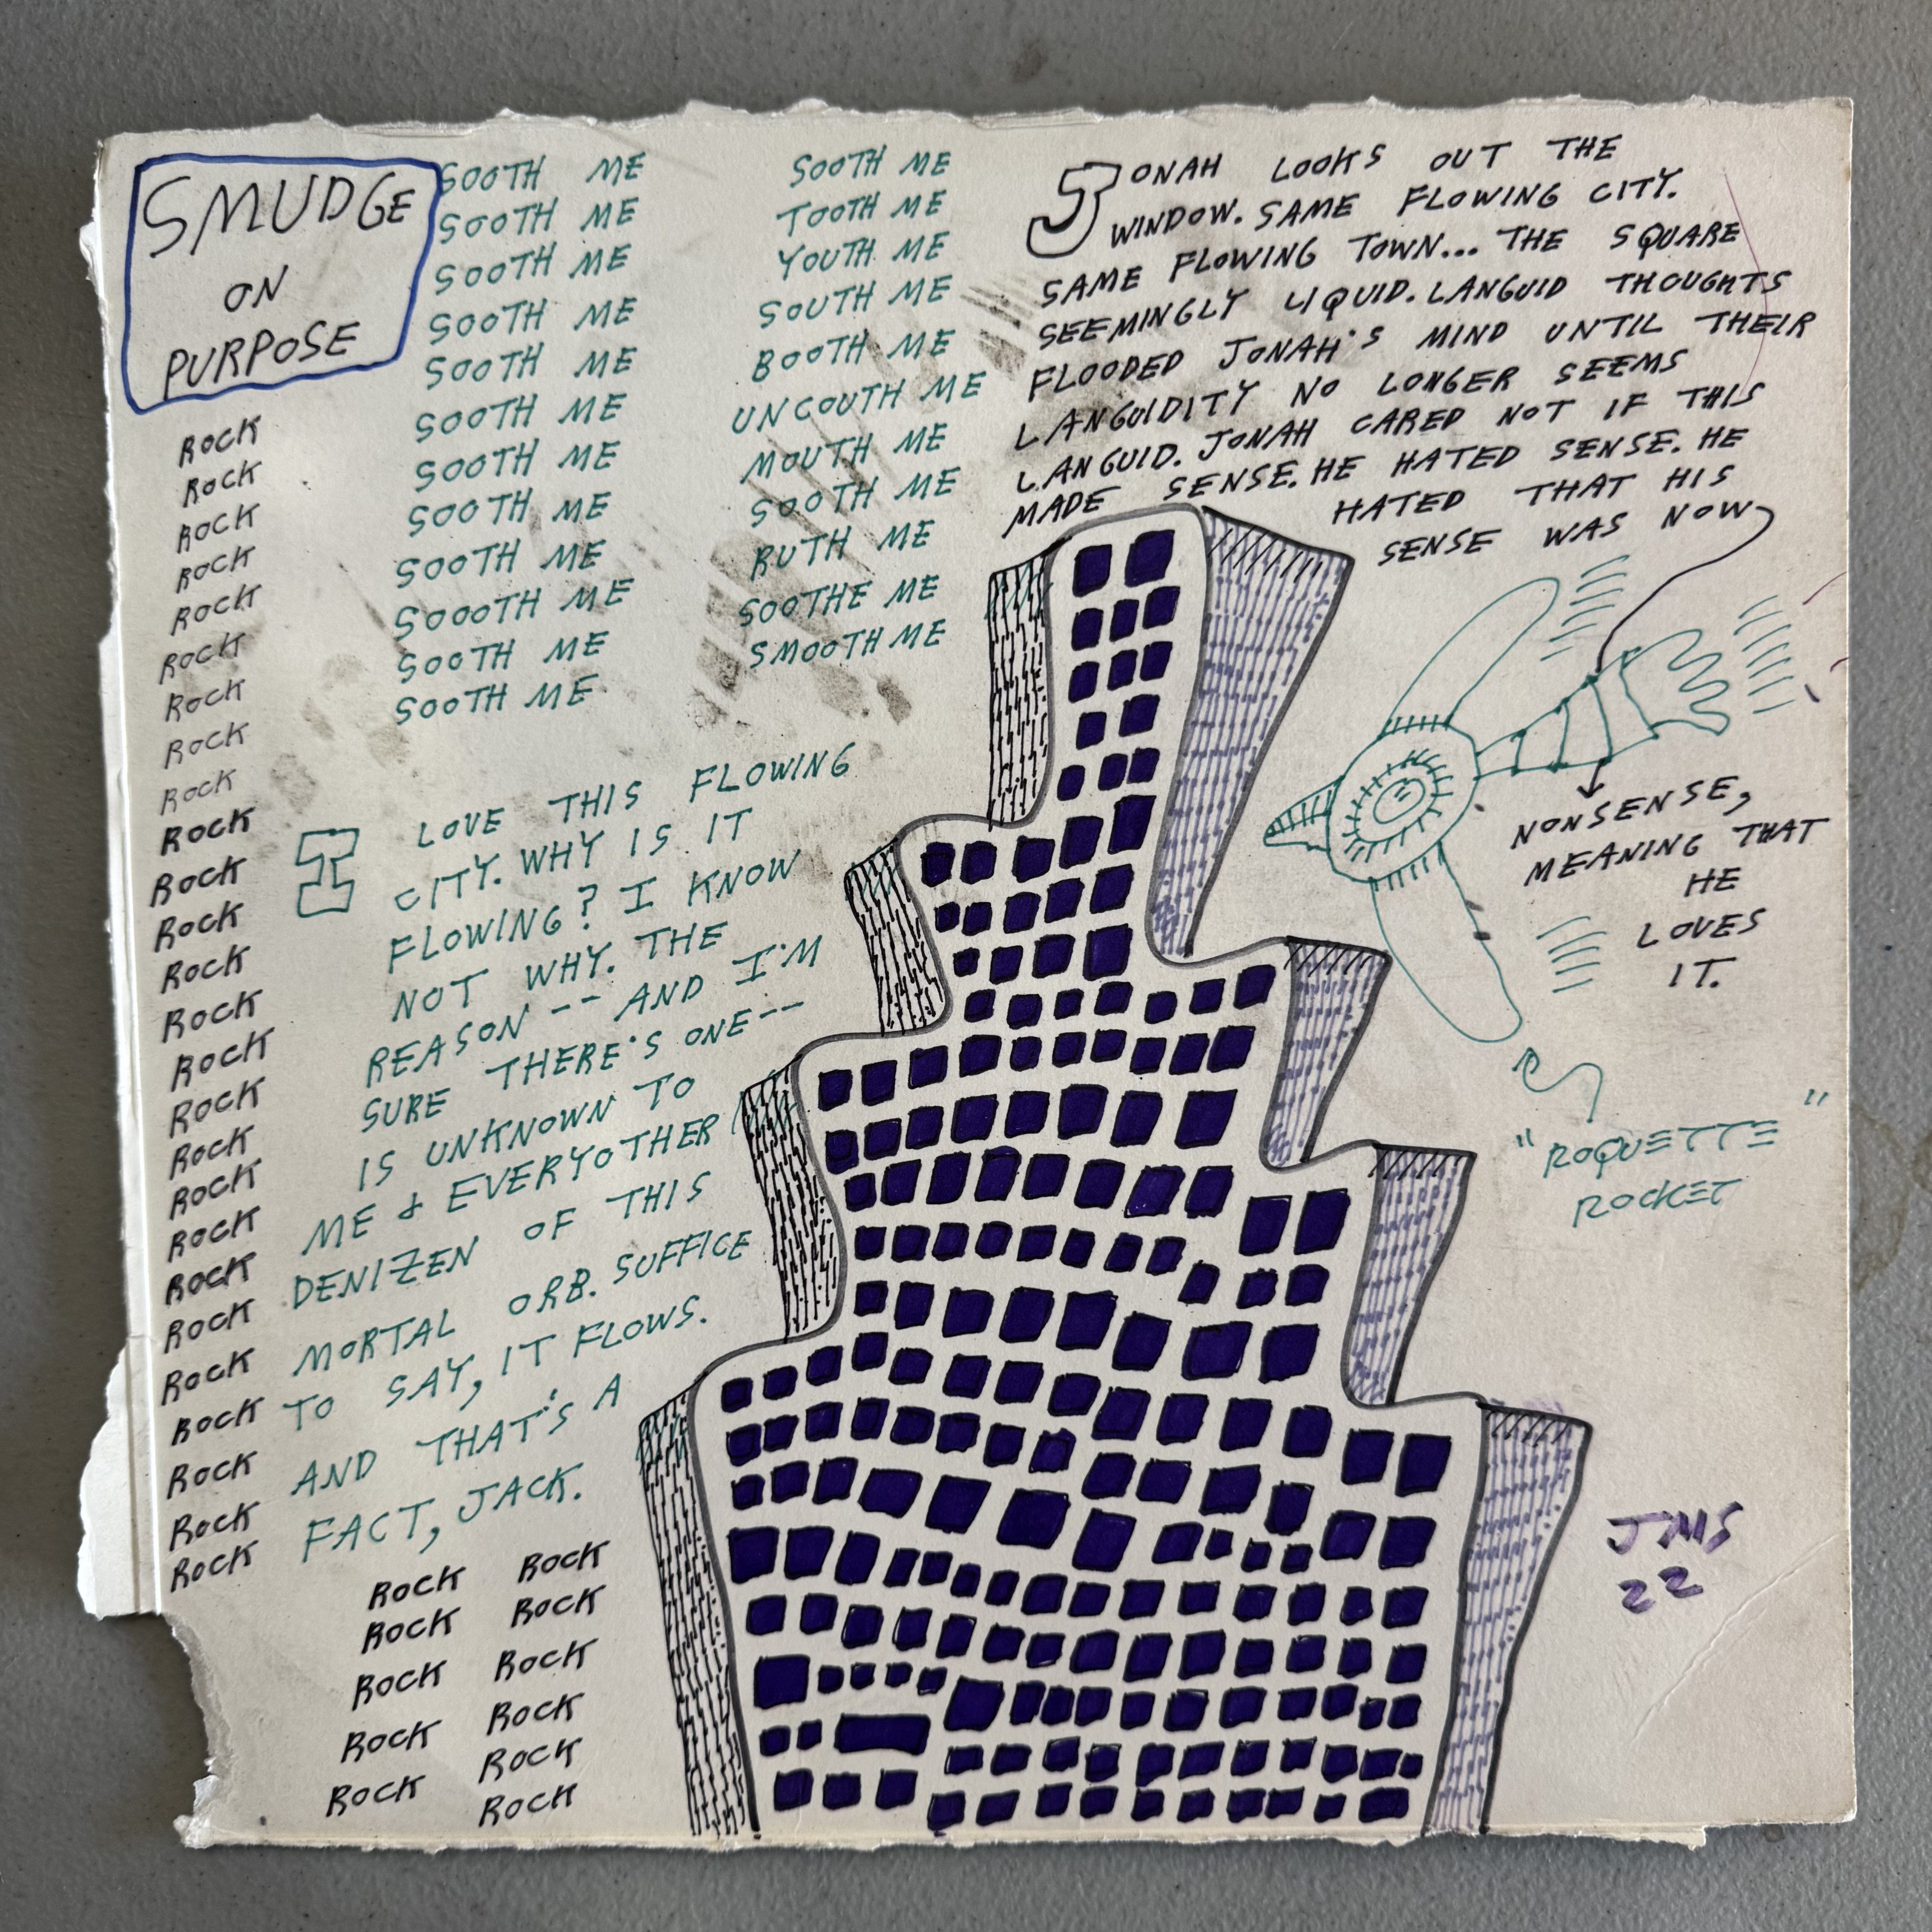 SMUDGE
ON
PURPOSE
ROCK
ROCK
ROCK
ROCK
ROCK
ROCK
ROCK
ROCK
ROCK
ROCK
ROCK
ROCK
ROCK
ROCK
ROCK
ROCK
ROCK
ROCK
ROCK
ROCK
ROCK
ROCK
ROCK
ROCK
ROCK
ROCK
SOOTH ME
SOOTH ME
SOOTH ME
SOOTH ME
SOOTH ME
SOOTH ME
SOOTH ME
SOOTH ME
SOOTH ME
SOOOTH ME
SOOTH ME
SOOTH ME
SOOTH ME
TOOTH ME
YOUTH ME
SOUTH ME
BOOTH ME
UNCOUTH ME
MOUTH ME
SOOTH ME
RUTH ME
SOOTHE ME
SMOOTH ME
JONAH LOOKS OUT THE
WINDOW. SAME FLOWING CITY.
SAME FLOWING TOWN... THE SQUARE
SEEMINGLY LIQUID. LANGUID THOUGHTS
FLOODED JONAH'S MIND UNTIL THEIR
LANGUIDITY NO LONGER SEEMS
LANGUID. JONAH CARED NOT IF THIS
MADE SENSE. HE HATED SENSE. HE
HATED THAT HIS
SENSE WAS NOW
NONSENSE,
MEANING THAT
HE
LOVES
IT.
"ROQUETTE"
ROCKET
I LOVE THIS FLOWING
CITY. WHY IS IT
FLOWING? I KNOW
NOT WHY. THE
REASON -- AND I'M
SURE THERE'S ONE--
IS UNKNOWN TO
ME & EVERYOTHER
DENIZEN OF THIS
MORTAL ORB. SUFFICE
TO SAY, IT FLOWS.
AND THAT'S A
FACT, JACK.
ROCK ROCK
ROCK ROCK
ROCK ROCK
ROCK ROCK
ROCK
ROCK ROCK
JMS
22